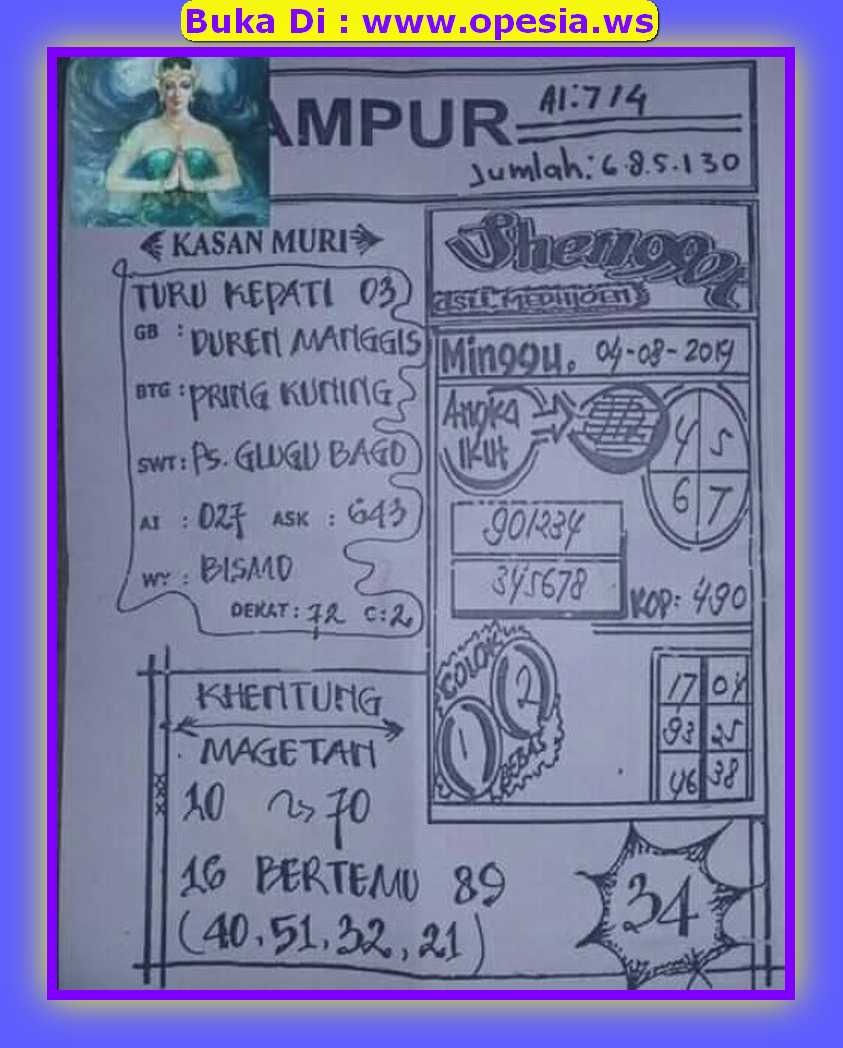 Buka Di : www.opesia.ws
AMPUR
AI:7/4
Jumlah: 6.8.5.130
KASAN MURI
TURU KEPATI 03
GB : DUREN MANGGIS
BTG : PRING KUNING
SWT : PS. GLUGU BAGO
AI : 027 ASK : 643
WY : BISMO
DEKAT : 72 C : 2
ASLI MEDHIOEN
Minggu, 04-08-2019
Angka
Ikut
4 5
6 7
901234
345678
KOP: 490
COLOK
1 2
BEBAS
17 04
93 25
46 38
KHENTUNG
MAGETAN
10 70
16 BERTEMU 89
(40, 51, 32, 21)
34